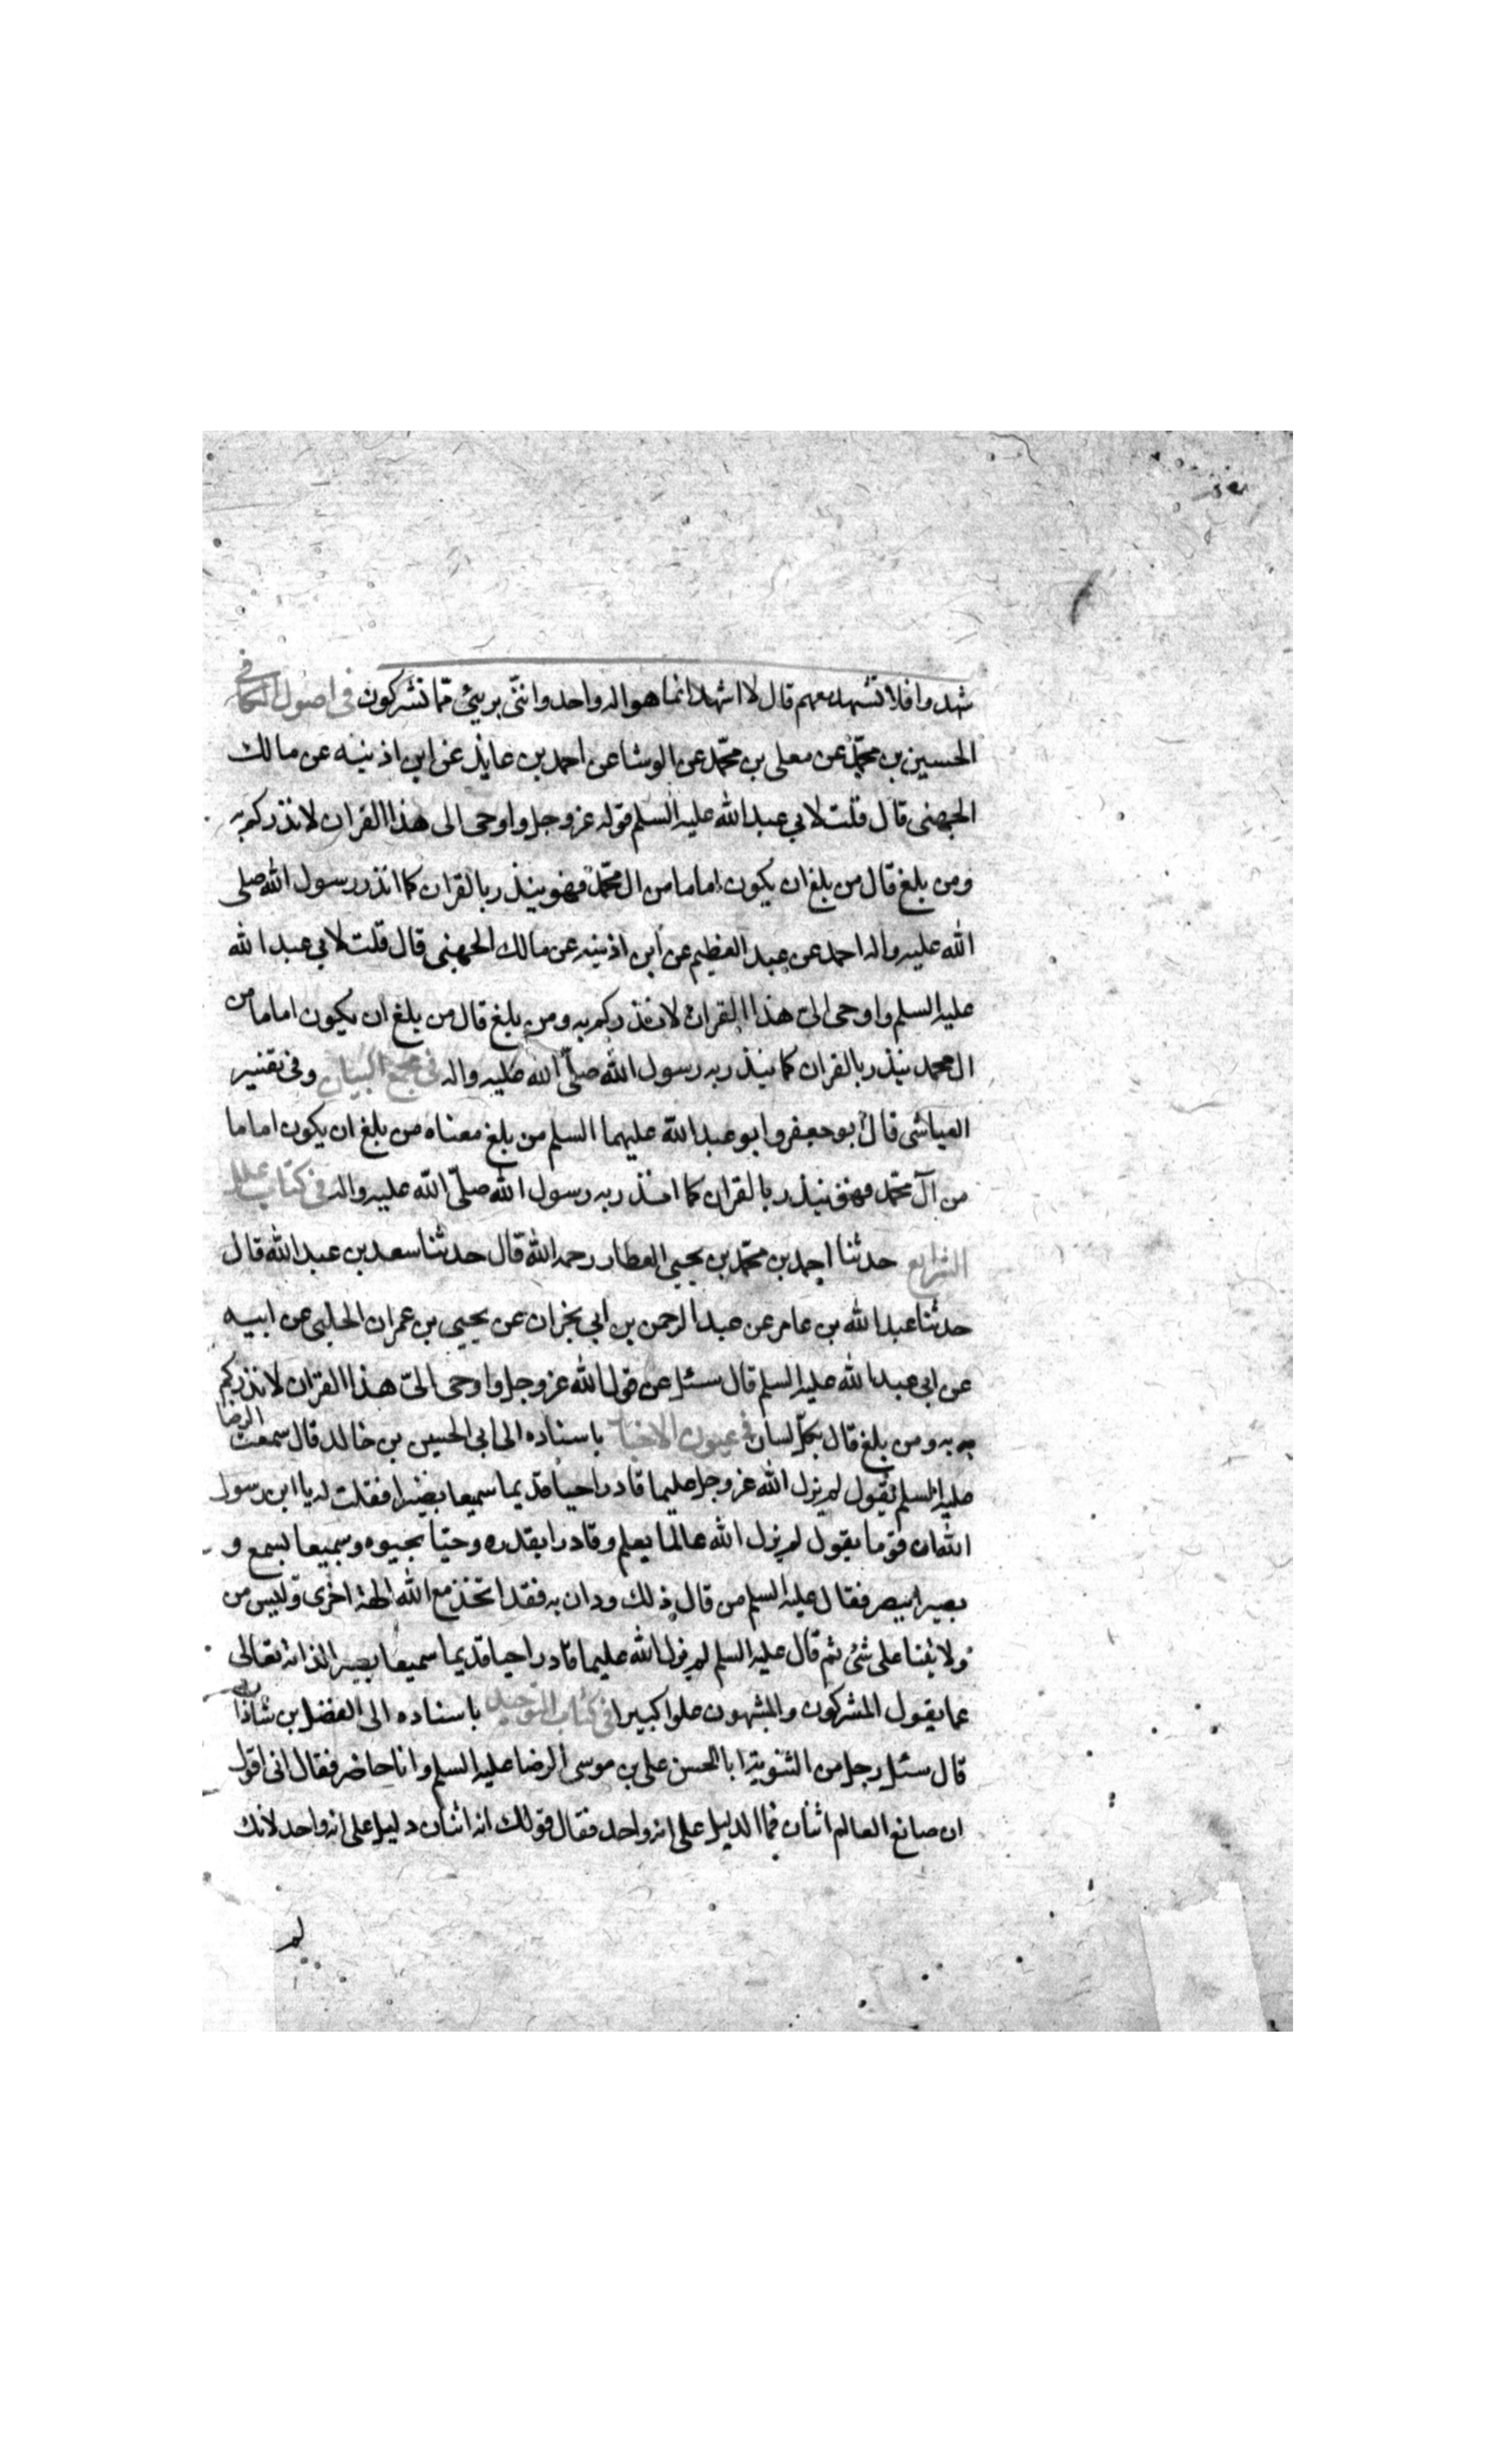 شهدوا فلا تشهد معهم قال لا اشهد انما هو اله واحد وانني بريئ مما تشركون في اصول الكافي
الحسين بن محمد عن معلى بن محمد عن الوشا عن احمد بن عايذ عن ابن اذينه عن مالك
الجهنى قال قلت لابي عبد الله عليه السلم قوله عز وجل واوحى الى هذا القران لانذركم به
ومن بلغ قال من بلغ ان يكون اماما من ال محمد فهو ينذر بالقران كما انذر رسول الله صلى
الله عليه واله احمد عن عبد العظيم عن ابن اذينه عن مالك الجهنى قال قلت لابي عبد الله
عليه السلم واوحى الىّ هذا القران لانذركم به ومن بلغ قال من بلغ ان يكون اماما من
ال محمد ينذر بالقران كما ينذر به رسول الله صلّى الله عليه واله في مجمع البيان وفى تفسير
العياشى قال ابو جعفر وابو عبد الله عليهما السلم من بلغ معناه من بلغ ان يكون اماما
من آل محمّد فهو ينذر بالقران كما انذر به رسول الله صلّى الله عليه واله في كتاب علل
الشرايع حدثنا احمد بن محمّد بن يحيى العطار رحمه الله قال حدثنا سعد بن عبد الله قال
حدثنا عبد الله بن عامر عن عبد الرحمن بن ابي نجران عن يحيى بن عمران الحلبى عن ابيه
عن ابي عبد الله عليه السلم قال سئل عن قول الله عز وجل واوحى الىّ هذا القران لانذركم
به به ومن بلغ قال بكلّ لسان في عيون الاخبار باسناده الى ابى الحسين بن خالد قال سمعت الرضا
عليه السلم يقول لم يزل الله عز وجل عليما قادرا حيا قديما سميعا بصيرا فقلت له يا ابن رسول
الله ان قوما يقول لم يزل الله عالما بعلم وقادرا بقدره وحيّا بحيوه وسميعا بسمع و
بصيرا ببصر فقال عليه السلم من قال ذلك ودان به فقد اتخذ مع الله الهة اخرى وليس من
ولايتنا على شئ ثم قال عليه السلم لم يزل الله عليما قادرا حيا قديما سميعا بصيرا لذاته تعالى
عما يقول المشركون والمشبهون علوا كبيرا في كتاب التوحيد باسناده الى الفضل بن شاذان
قال سئل رجل من الثنوية ابا الحسن على بن موسى الرضا عليه السلم وانا حاضر فقال انى اقول
ان صانع العالم اثنان فما الدليل على انه واحد فقال قولك انه اثنان دليل على انه واحد لانك
لم